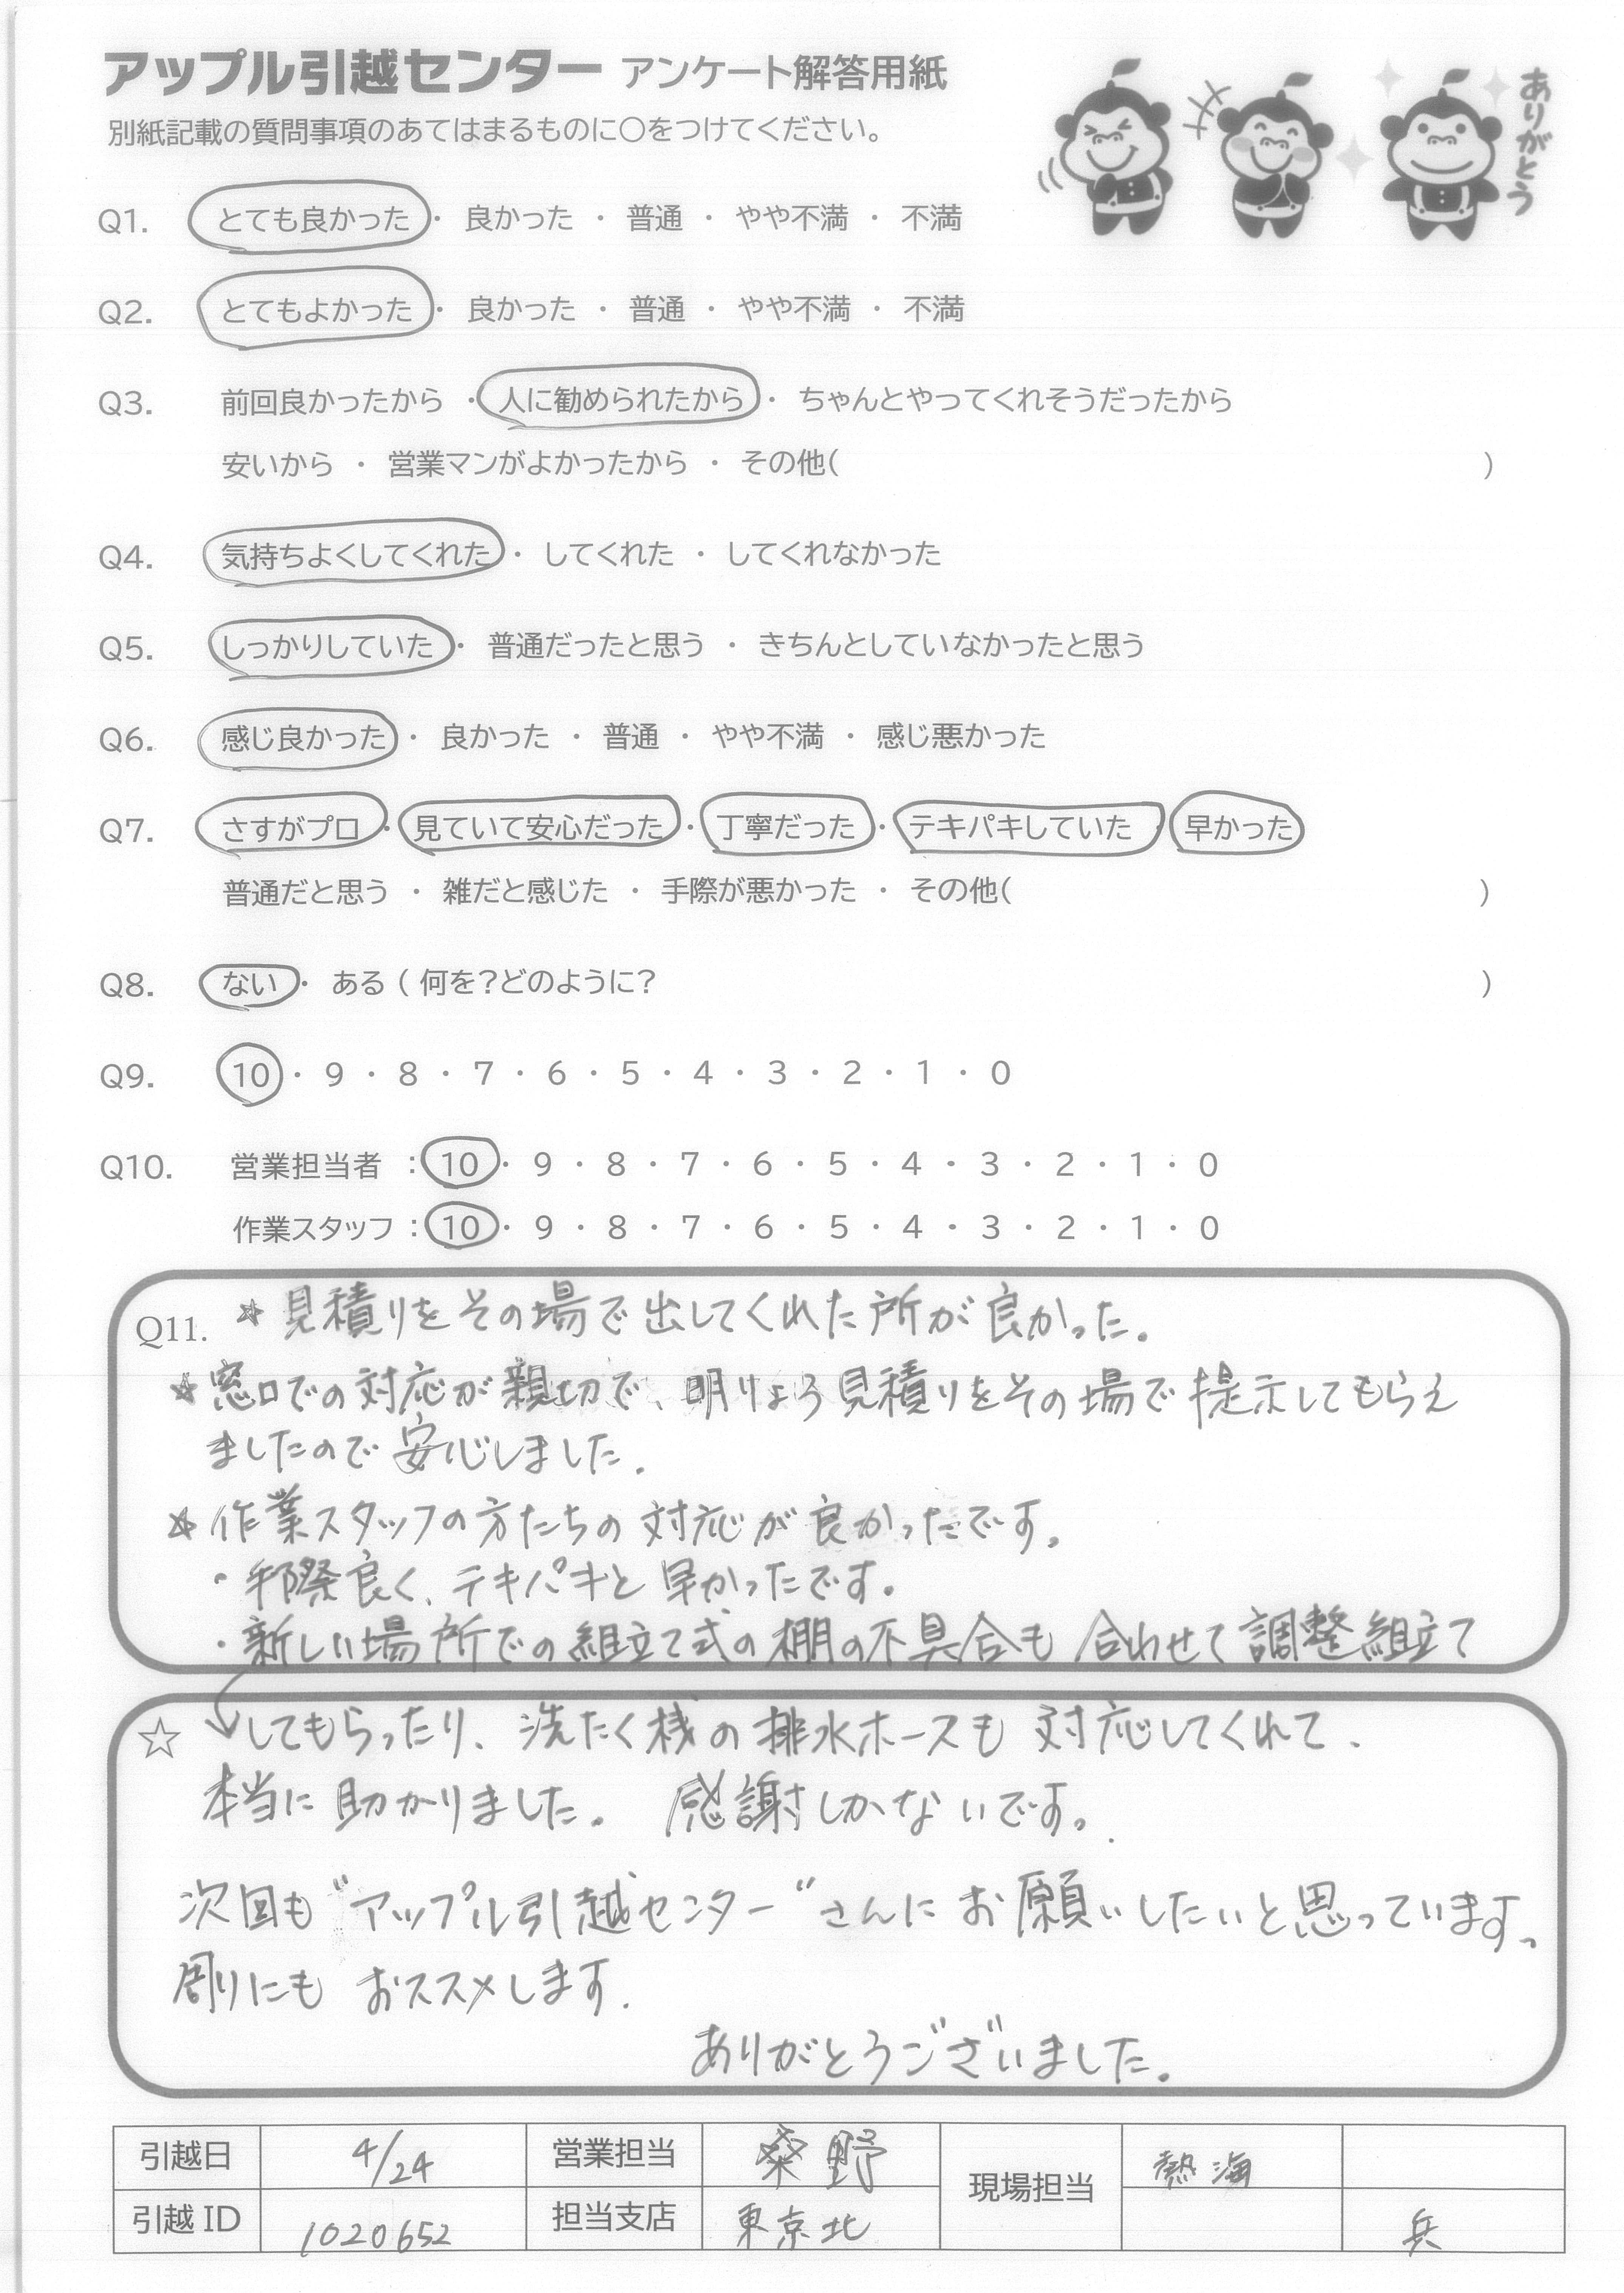 アップル引越センター アンケート解答用紙
別紙記載の質問事項のあてはまるものに〇をつけてください。
ありがとう
Q1. とても良かった ・ 良かった ・ 普通 ・ やや不満 ・ 不満
Q2. とてもよかった ・ 良かった ・ 普通 ・ やや不満 ・ 不満
Q3. 前回良かったから ・ 人に勧められたから ・ ちゃんとやってくれそうだったから
安いから ・ 営業マンがよかったから ・ その他( )
Q4. 気持ちよくしてくれた ・ してくれた ・ してくれなかった
Q5. しっかりしていた ・ 普通だったと思う ・ きちんとしていなかったと思う
Q6. 感じ良かった ・ 良かった ・ 普通 ・ やや不満 ・ 感じ悪かった
Q7. さすがプロ ・ 見ていて安心だった ・ 丁寧だった ・ テキパキしていた ・ 早かった
普通だと思う ・ 雑だと感じた ・ 手際が悪かった ・ その他( )
Q8. ない ・ ある ( 何を?どのように? )
Q9. 10 ・ 9 ・ 8 ・ 7 ・ 6 ・ 5 ・ 4 ・ 3 ・ 2 ・ 1 ・ 0
Q10. 営業担当者 : 10 ・ 9 ・ 8 ・ 7 ・ 6 ・ 5 ・ 4 ・ 3 ・ 2 ・ 1 ・ 0
作業スタッフ : 10 ・ 9 ・ 8 ・ 7 ・ 6 ・ 5 ・ 4 ・ 3 ・ 2 ・ 1 ・ 0
Q11. ☆ 見積りをその場で出してくれた所が良かった。
☆ 窓口での対応が親切で、明りょう見積りをその場で提示してもらえ
ましたので安心しました。
☆ 作業スタッフの方たちの対応が良かったです。
・手際良く、テキパキと早かったです。
・新しい場所での組立て式の棚の不具合も合わせて調整組立て
☆ してもらったり、洗たく機の排水ホースも対応してくれて、
本当に助かりました。 感謝しかないです。
次回も"アップル引越センター"さんにお願いしたいと思っています。
周りにもおススメします。
ありがとうございました。
引越日 4/24 営業担当 桑野 現場担当 熱海
引越ID 1020652 担当支店 東京北 兵